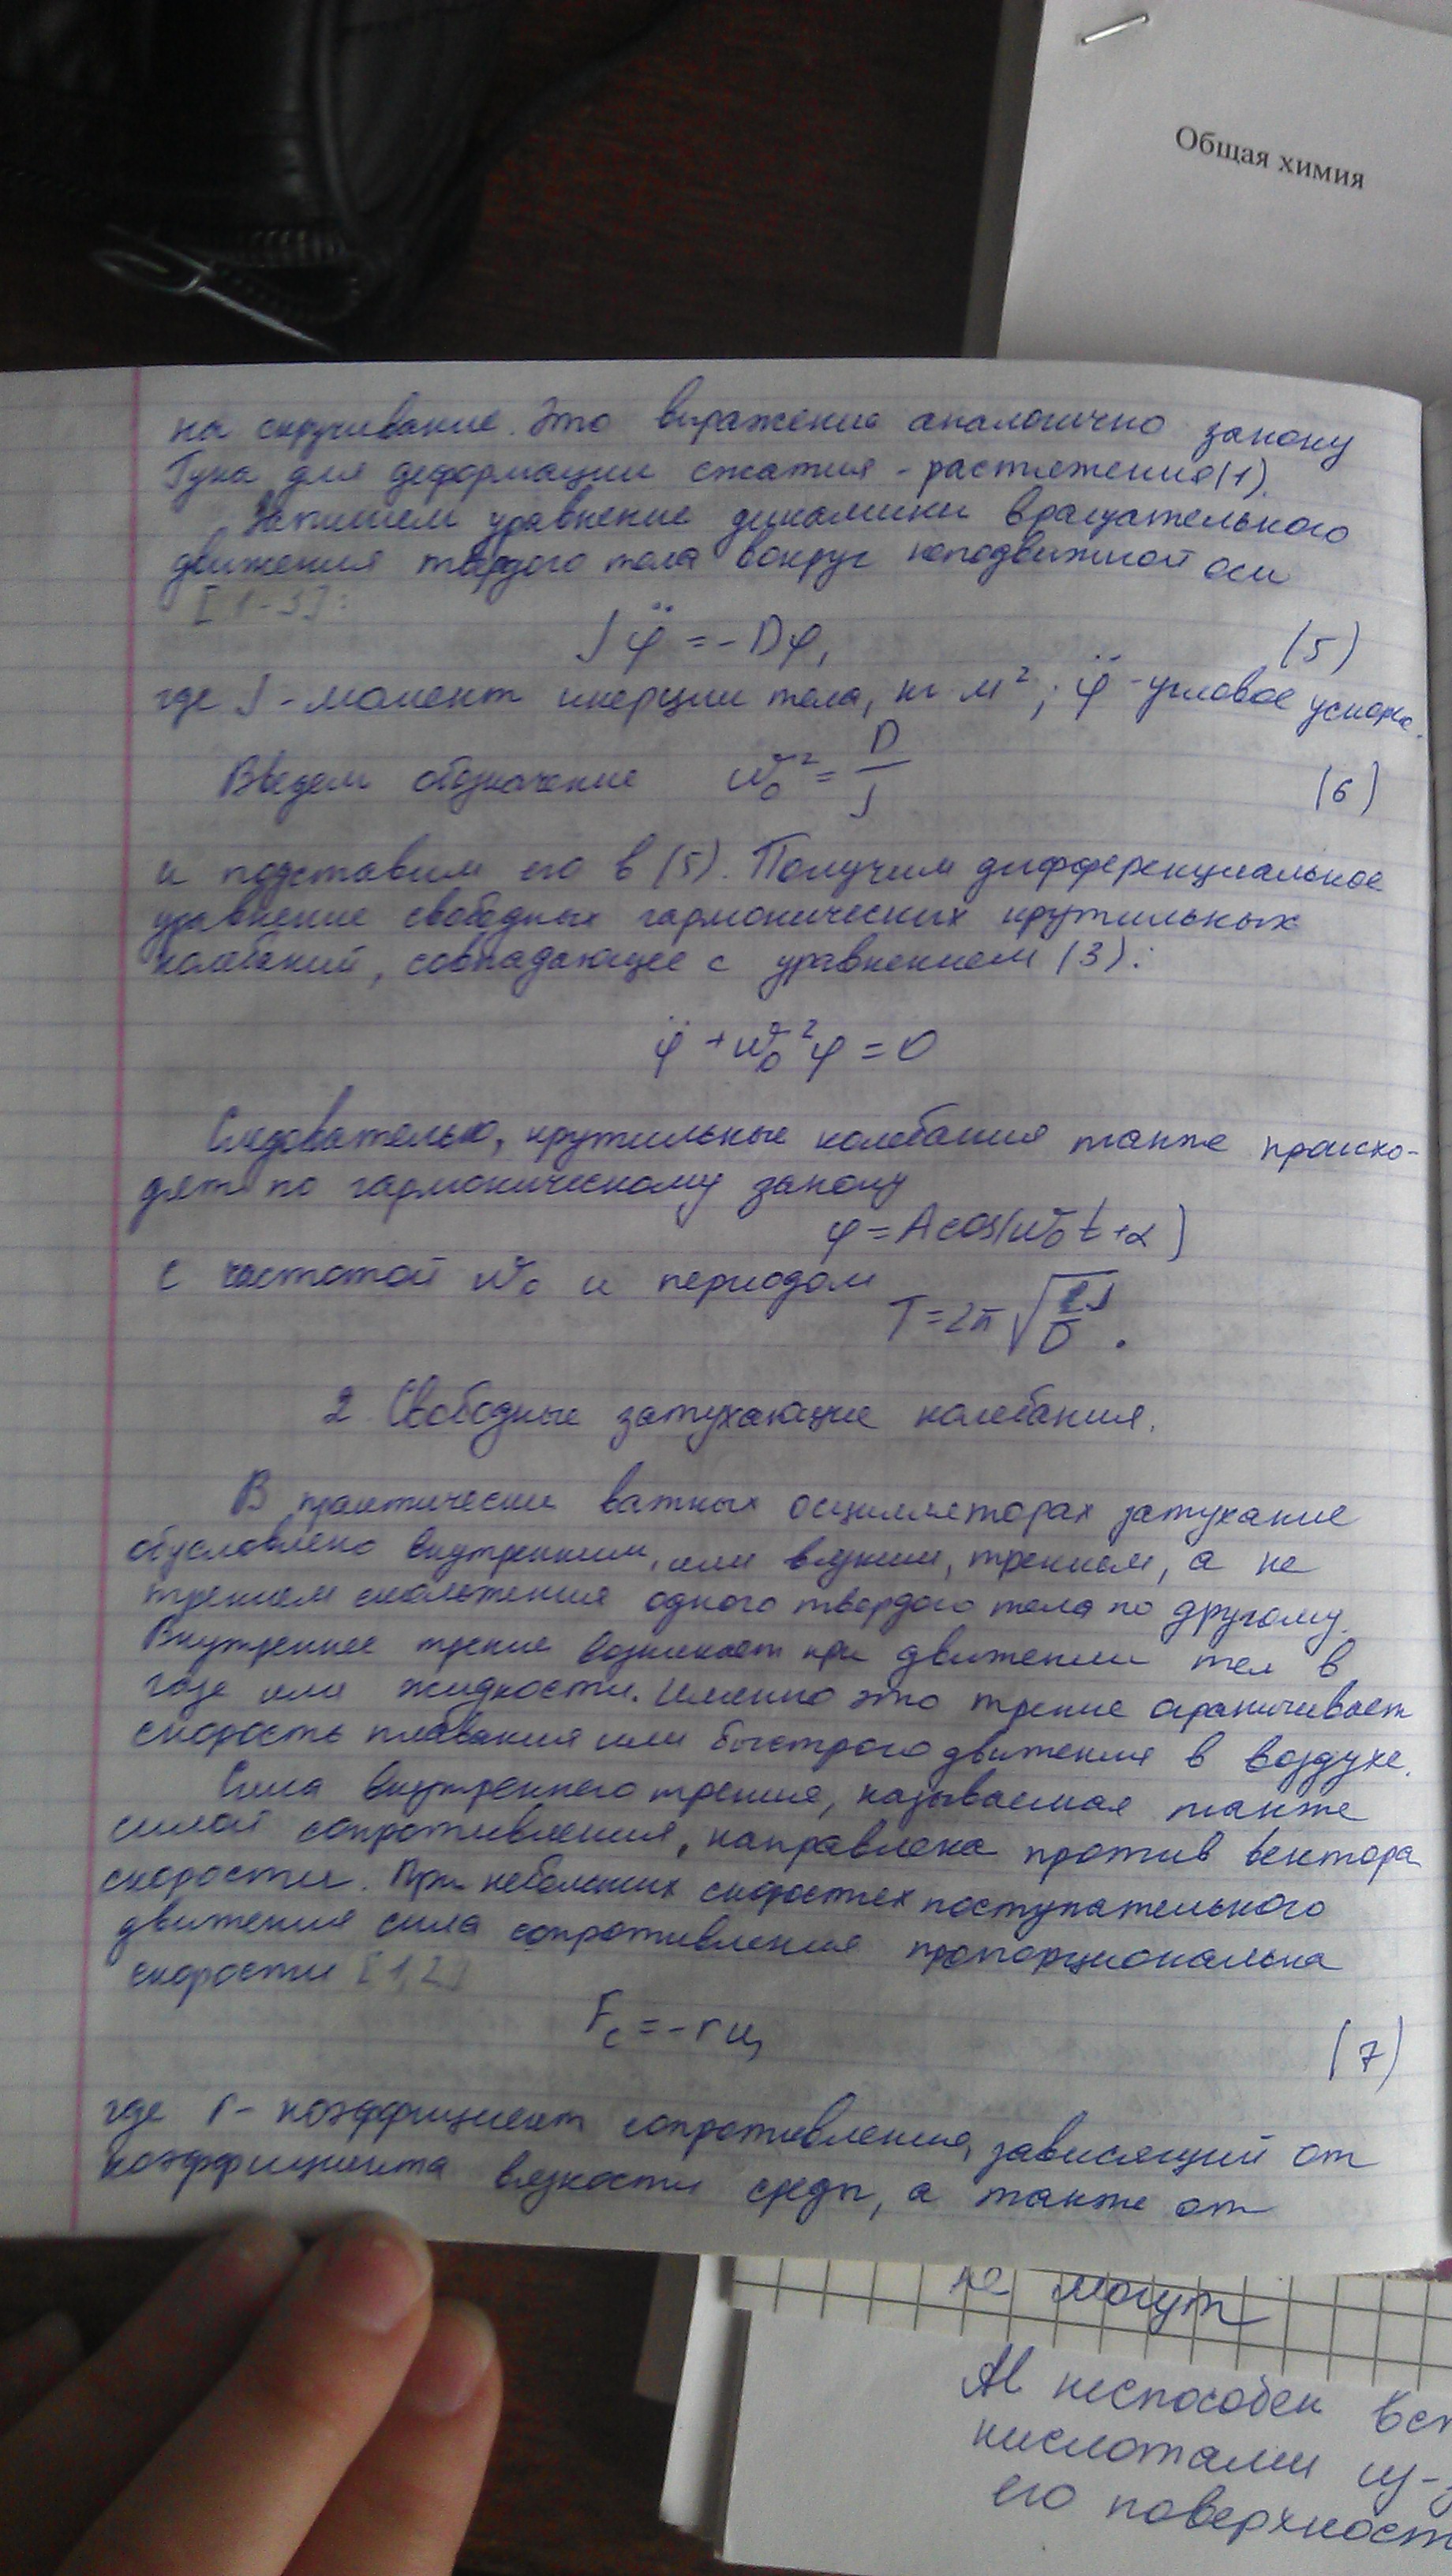 Общая химия
на скручивание. Это выражение аналогично закону
Гука для деформации сжатия - растяжения (1).
Запишем уравнение динамики вращательного
движения твёрдого тела вокруг неподвижной оси
[1-3]:
Jφ̈ = -Dφ, (5)
где J - момент инерции тела, кг м²; φ̈ - угловое ускоре.
Введем обозначение ω₀² = D/J (6)
и подставим его в (5). Получим дифференциальное
уравнение свободных гармонических крутильных
колебаний, совпадающее с уравнением (3):
φ̈ + ω₀²φ = 0
Следователью, крутильные колебания также происхо-
дят по гармоническому закону
φ = A cos(ω₀t + α)
с частотой ω₀ и периодом
T = 2π√(J/D).
2. Свободные затухающие колебания.
В практически важных осцилляторах затухание
обусловлено внутренним, или вязким, трением, а не
трением скольжения одного твердого тела по другому.
Внутреннее трение возникает при движении тел в
газе или жидкости. Именно это трение ограничивает
скорость плавания или быстрого движения в воздухе.
Сила внутреннего трения, называемая также
силой сопротивления, направлена против вектора
скорости. При небольших скоростях поступательного
движения сила сопротивления пропорциональна
скорости [1,2]
Fc = -rυ, (7)
где r - коэффициент сопротивления, зависящий от
коэффициента вязкости среды, а также от
не могут
Al неспособен вст
кислотами из-з
его поверхност